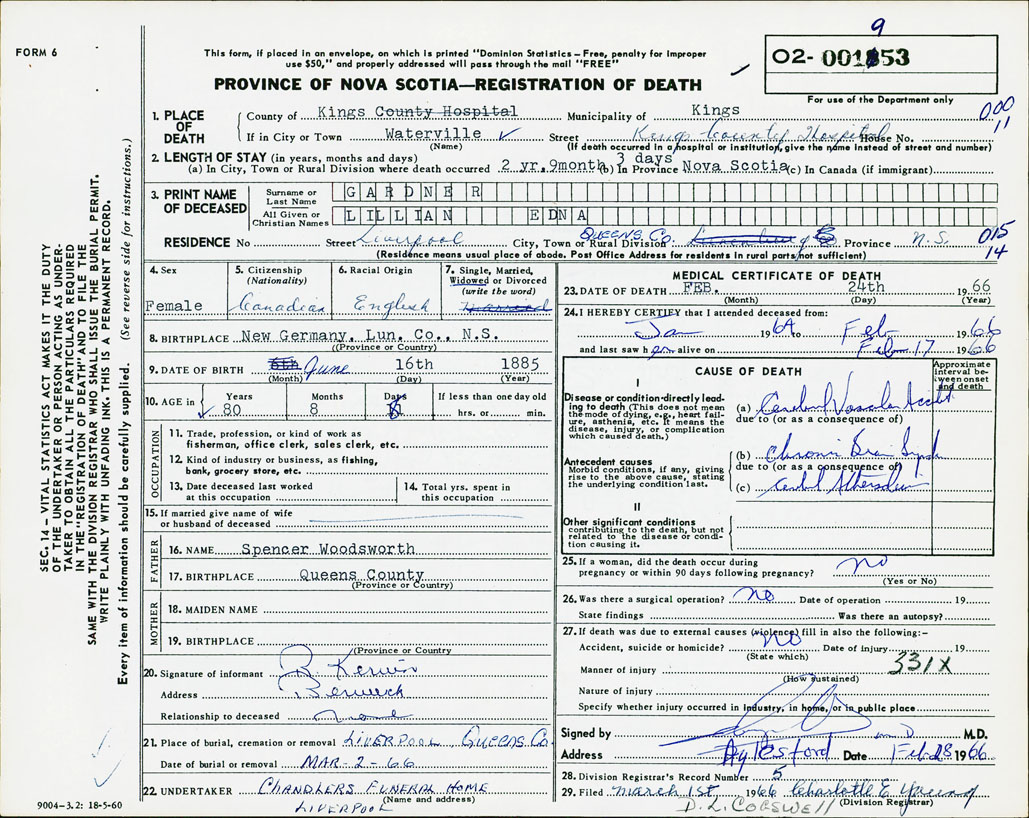 9
FORM 6
This form, if placed in an envelope, on which is printed "Dominion Statistics—Free, penalty for improper
use $50," and properly addressed will pass through the mail "FREE"
PROVINCE OF NOVA SCOTIA—REGISTRATION OF DEATH
02- 001853
For use of the Department only
000
11
1. PLACE OF DEATH County of Kings County Hospital Municipality of Kings
If in City or Town Waterville Street Kings County Hospital House No.
(Name) (If death occurred in a hospital or institution, give the name instead of street and number)
2. LENGTH OF STAY (in years, months and days)
(a) In City, Town or Rural Division where death occurred 2 yr. 9month 3 days (b) In Province Nova Scotia (c) In Canada (if immigrant)
3. PRINT NAME OF DECEASED Surname or Last Name GARDNER
All Given or Christian Names LILLIAN EDNA
RESIDENCE No Street Liverpool City, Town or Rural Division QUEENS CO. Province N.S. 015
14
(Residence means usual place of abode. Post Office Address for residents in rural parts not sufficient)
4. Sex Female
5. Citizenship (Nationality) Canadian
6. Racial Origin English
7. Single, Married, Widowed or Divorced (write the word) Married
8. BIRTHPLACE New Germany, Lun. Co., N.S.
(Province or County)
9. DATE OF BIRTH June 16th 1885
(Month) (Day) (Year)
10. AGE in Years 80 Months 8 Days If less than one day old hrs. or min.
OCCUPATION
11. Trade, profession, or kind of work as fisherman, office clerk, sales clerk, etc.
12. Kind of industry or business, as fishing, bank, grocery store, etc.
13. Date deceased last worked at this occupation
14. Total yrs. spent in this occupation
15. If married give name of wife or husband of deceased
FATHER
16. NAME Spencer Woodsworth
17. BIRTHPLACE Queens County
(Province or County)
MOTHER
18. MAIDEN NAME
19. BIRTHPLACE
(Province or Country)
20. Signature of informant R Kerwin
Address Berwick
Relationship to deceased none
21. Place of burial, cremation or removal LIVERPOOL QUEENS CO
Date of burial or removal MAR-2-66
22. UNDERTAKER CHANDLERS FUNERAL HOME
(Name and address)
LIVERPOOL
9004—3.2: 18-5-60
MEDICAL CERTIFICATE OF DEATH
23. DATE OF DEATH FEB. 24th 1966
(Month) (Day) (Year)
24. I HEREBY CERTIFY that I attended deceased from:
Jan 1964 to Feb 1966
and last saw her alive on Feb 17 1966
CAUSE OF DEATH
Approximate interval between onset and death
I
Disease or condition directly leading to death (This does not mean the mode of dying, e.g., heart failure, asthenia, etc. It means the disease, injury, or complication which caused death.)
(a) Cerebral Vascular Accdt
due to (or as a consequence of)
Antecedent causes
Morbid conditions, if any, giving rise to the above cause, stating the underlying condition last.
(b) Chronic Brain
due to (or as a consequence of)
(c)
II
Other significant conditions contributing to the death, but not related to the disease or condition causing it.
25. If a woman, did the death occur during pregnancy or within 90 days following pregnancy? no
(Yes or No)
26. Was there a surgical operation? no Date of operation 19
State findings Was there an autopsy?
27. If death was due to external causes (violence) fill in also the following:—
Accident, suicide or homicide? no Date of injury 19
(State which)
Manner of injury 331X
(How sustained)
Nature of injury
Specify whether injury occurred in industry, in home, or in public place
Signed by M.D.
Address Aylesford Date Feb 28 1966
28. Division Registrar's Record Number 5
29. Filed March 1st 1966 Charlotte E Young
(Division Registrar)
D. L. COGSWELL
SEC. 14 – VITAL STATISTICS ACT MAKES IT THE DUTY
OF THE UNDERTAKER OR PERSON ACTING AS UNDER-
TAKER TO OBTAIN ALL THE PARTICULARS REQUIRED
IN THE "REGISTRATION OF DEATH" AND TO FILE THE
SAME WITH THE DIVISION REGISTRAR WHO SHALL ISSUE THE BURIAL PERMIT.
WRITE PLAINLY WITH UNFADING INK. THIS IS A PERMANENT RECORD.
Every item of information should be carefully supplied. (See reverse side for instructions.)